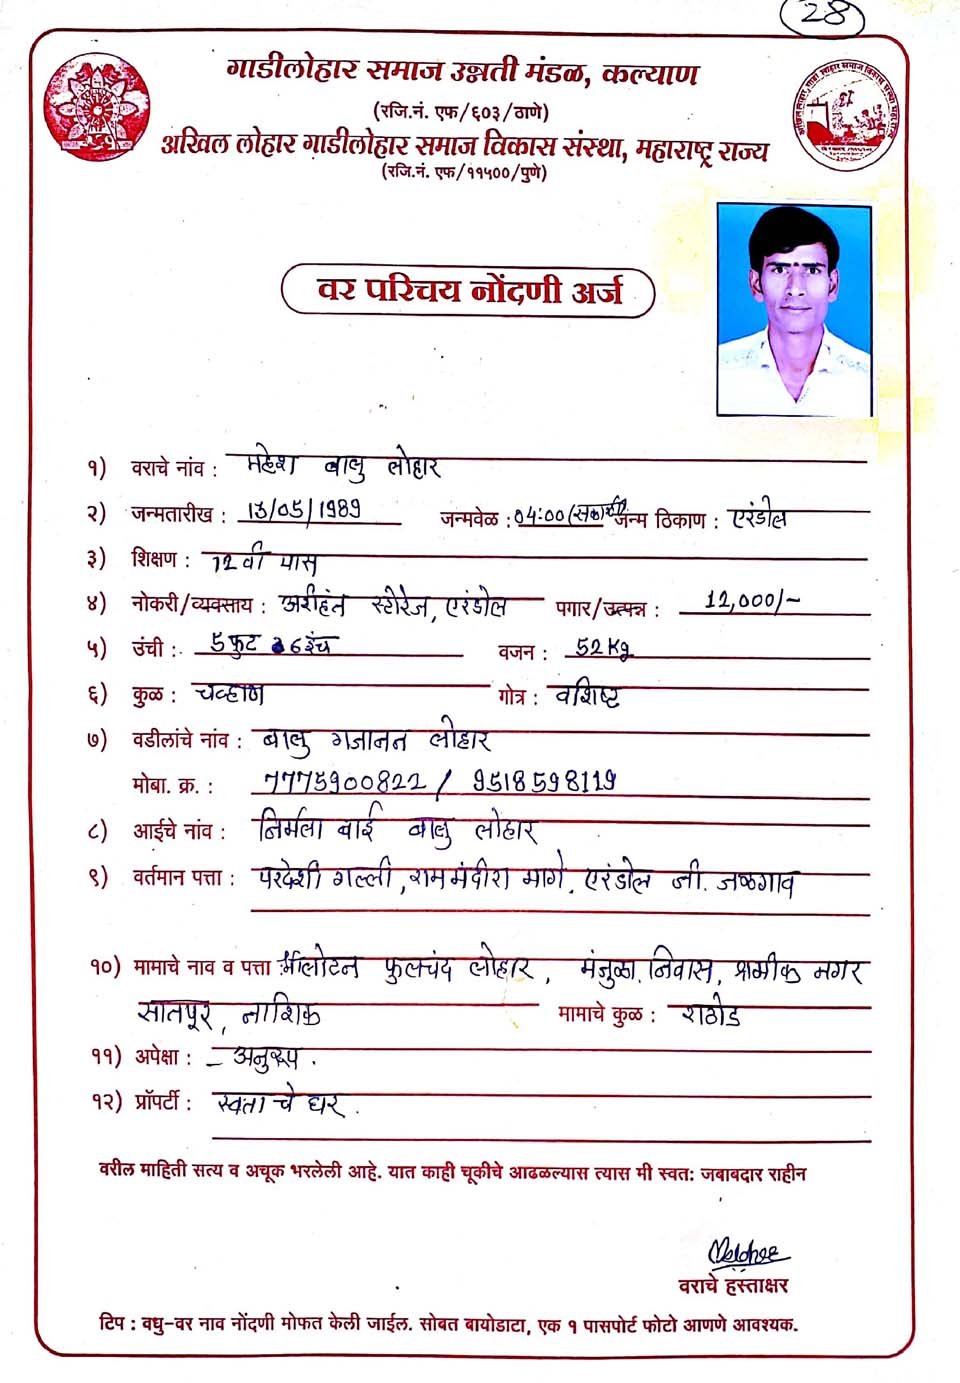 28
गाडीलोहार समाज उन्नती मंडळ, कल्याण
(रजि.नं. एफ/६०३/ठाणे)
अखिल लोहार गाडीलोहार समाज विकास संस्था, महाराष्ट्र राज्य
(रजि.नं. एफ/११५००/पुणे)
वर परिचय नोंदणी अर्ज
१) वराचे नांव : महेश बालु लोहार
२) जन्मतारीख : 13/05/1989 जन्मवेळ : 04:00 (सकाळी) जन्म ठिकाण : एरंडोल
३) शिक्षण : 12 वी पास
४) नोकरी/व्यवसाय : अरीहंत स्टोरेज, एरंडोल पगार/उत्पन्न : 12,000/-
५) उंची : 5 फुट 6 इंच वजन : 52 Kg
६) कुळ : चव्हाण गोत्र : वशिष्ट
७) वडीलांचे नांव : बालु गजानन लोहार
मोबा. क्र. : 7775900822 / 9518598119
८) आईचे नांव : निर्मला बाई बालु लोहार
९) वर्तमान पत्ता : परदेशी गल्ली, राम मंदीरा मागे, एरंडोल जी. जळगाव
१०) मामाचे नाव व पत्ता : भिलोटन फुलचंद लोहार, मंजुळा निवास, श्रमीक नगर
सातपूर, नाशिक मामाचे कुळ : राठोड
११) अपेक्षा : - अनुरूप.
१२) प्रॉपर्टी : स्वताचे घर.
वरील माहिती सत्य व अचूक भरलेली आहे. यात काही चूकीचे आढळल्यास त्यास मी स्वत: जबाबदार राहीन
वराचे हस्ताक्षर
टिप : वधु-वर नाव नोंदणी मोफत केली जाईल. सोबत बायोडाटा, एक १ पासपोर्ट फोटो आणणे आवश्यक.